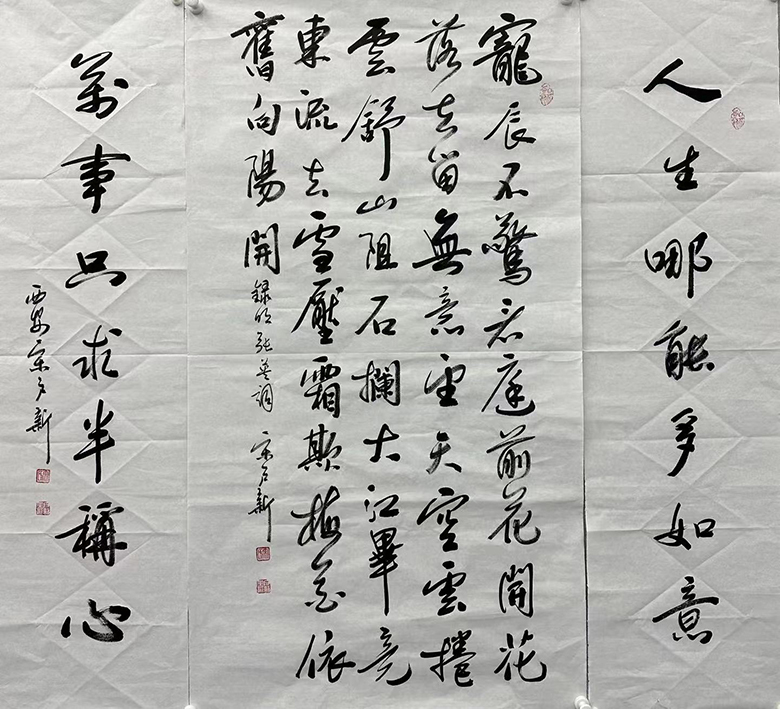 人生哪能多如意
寵辰不驚看庭前花開花
落去留無意望天空雲捲
雲舒山阻石攔大江畢竟
東流去雪壓霜欺梅花依
舊向陽開
錄明張
新
萬事只求半稱心
西安
新